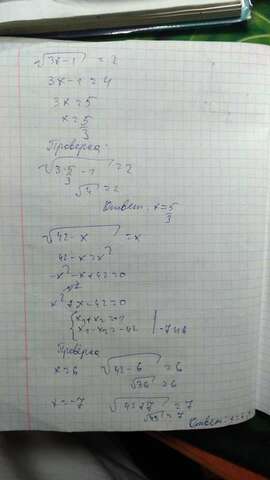 √3x-1 = 2
3x-1=4
3x=5
x=5/3
Проверка:
√3·5/3 - 1 = 2
√4 = 2
Ответ: x=5/3
√42-x = x
42-x=x²
-x²-x+42=0
x²+x-42=0
x₁·x₂=-42
-7 и 6
Проверка
x=6 √42-6 = 6
√36 = 6
x=-7 √42+7 = 7
√49 = 7
Ответ: